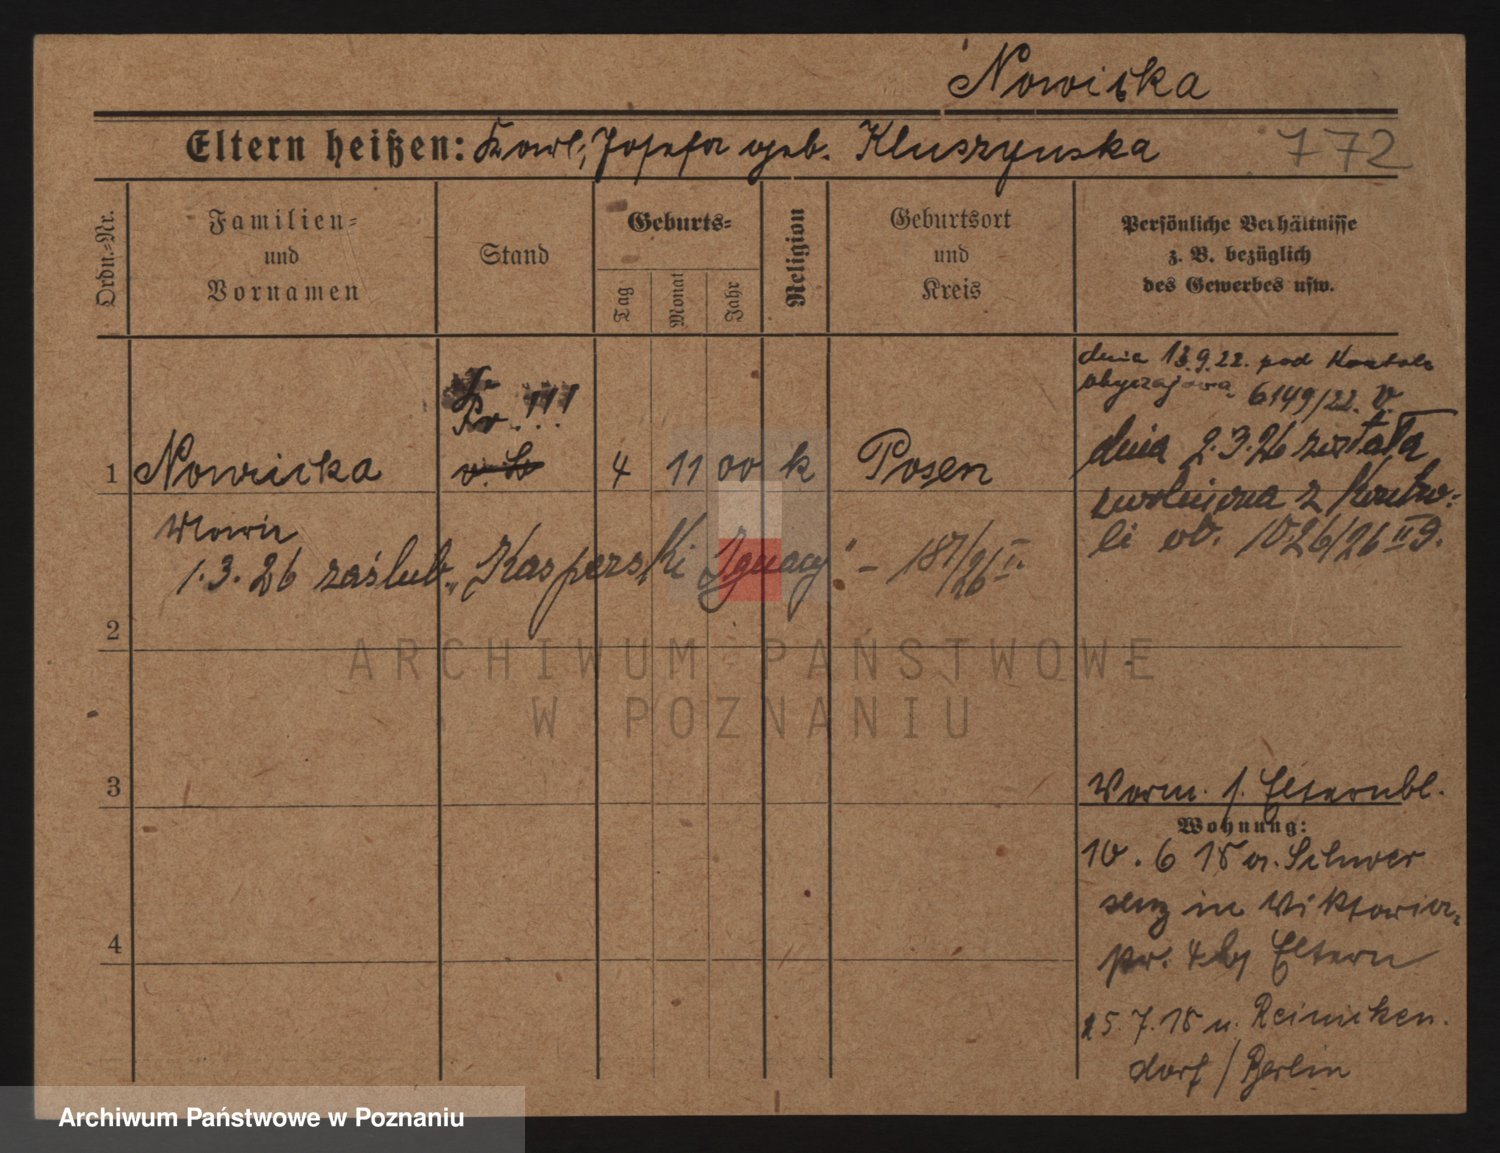 Nowicka
Eltern heißen: Karl, Josefa geb. Kluszynska 772
Ordn.-Nr.
Familien-
und
Vornamen
Stand
Geburts-
Tag
Monat
Jahr
Religion
Geburtsort
und
Kreis
Persönliche Verhältnisse
z. B. bezüglich
des Gewerbes usw.
dnia 13.9.22. pod Kontrolą
obyczajową 6149/22. V.
Pr. !!!
1 Nowicka 4 11 00 k Posen
Maria
dnia 2.3.26 została
zwolniona z Kontro-
li ob. 1026/26 II 9.
1.3.26 zaślub. „Kasperski Ignacy" – 187/26 II.
2
3
4
Verm. s. Elternbl.
Wohnung:
10. 6 18 a. Schwer
senz in Wiktoria-
pr. 4 b/ Eltern
25. 7. 18 n. Reinicken.
dorf / Berlin
ARCHIWUM PAŃSTWOWE
W POZNANIU
Archiwum Państwowe w Poznaniu